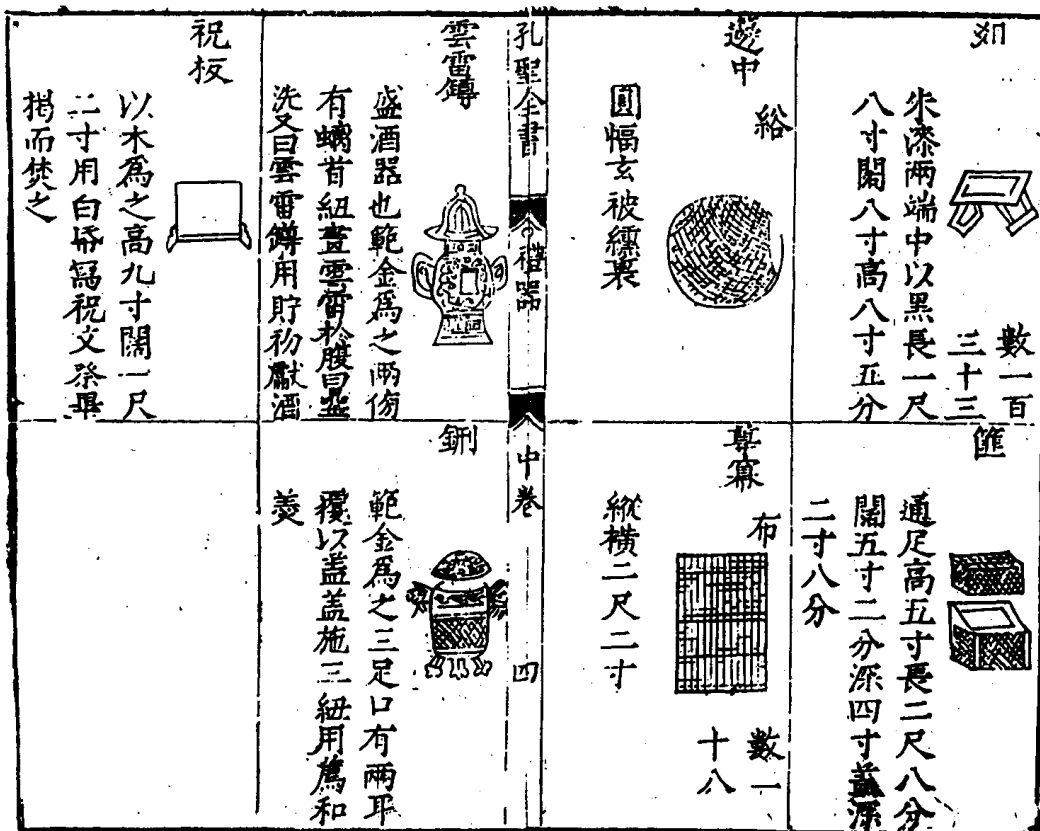 爼
數一百
三十三
朱漆兩端中以黑長一尺
八寸闊八寸高八寸五分
篚
通足高五寸長二尺八分
闊五寸二分深四寸蓋深
二寸八分
籩巾
綌
圓幅玄被纁裏
尊冪
布
數一
十八
縱橫二尺二寸
孔聖全書
禮器
中卷
四
雲雷鐏
盛酒器也範金爲之兩傍
有螭首紐畫雲雷於腹曰罍
洗又曰雲雷鐏用貯初獻酒
鉶
範金爲之三足口有兩耳
覆以盖盖施三紐用薦和
羮
祝板
以木爲之高九寸闊一尺
二寸用白紙寫祝文祭畢
揭而焚之